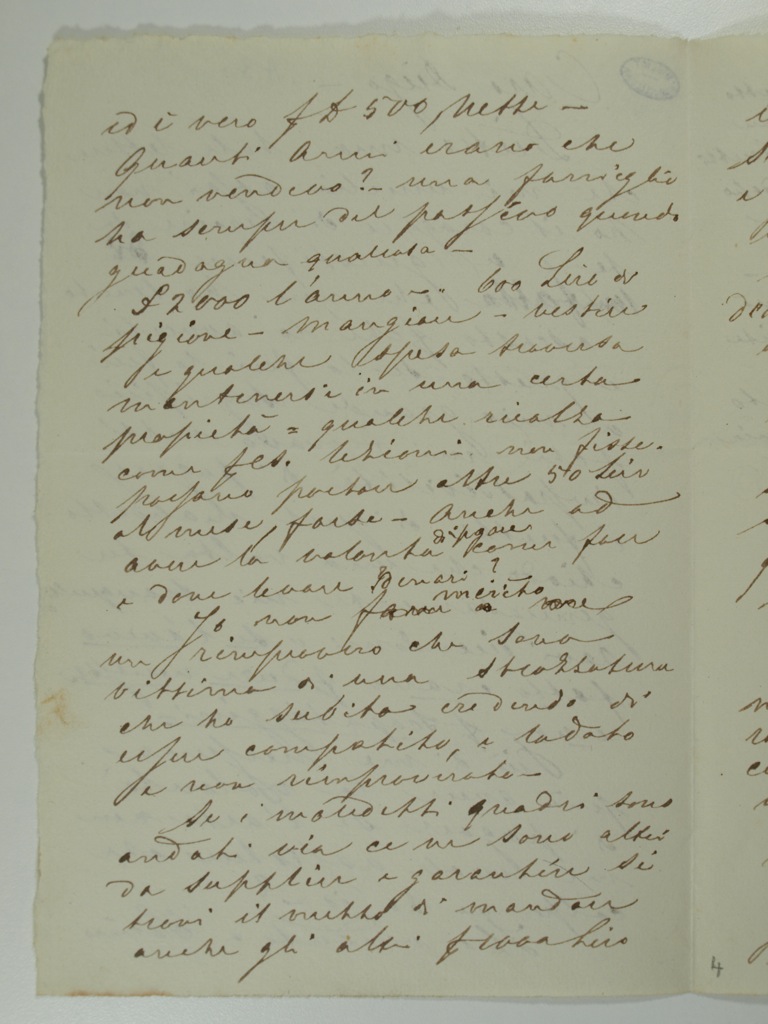 ed è vero £ 500 Nette —
Quanti Anni erano che
non vendevo? — una famiglia
ha sempre del passivo quando
guadagna qualcosa —
£ 2000 l'anno — 600 Lire di
pigione — mangiare — vestire
e qualche spesa traversa
mantenersi in una certa
propietà = qualche rialza
come lezioni non fisse.
possano portare altre 50 Lire
al mese, forse — Anche ad
avere la volontà di pagare come fare
e dove levare denari?
Io non merito
un rimprovero che sono
vittima di una strozzatura
che ho subita credendo di
esser compatito, e lodato
e non rimproverato —
Se i maledetti quadri sono
andati via ce ne sono altri
da supplire e garantire si
trovi il mezzo di mandare
anche gli altri Lire
4